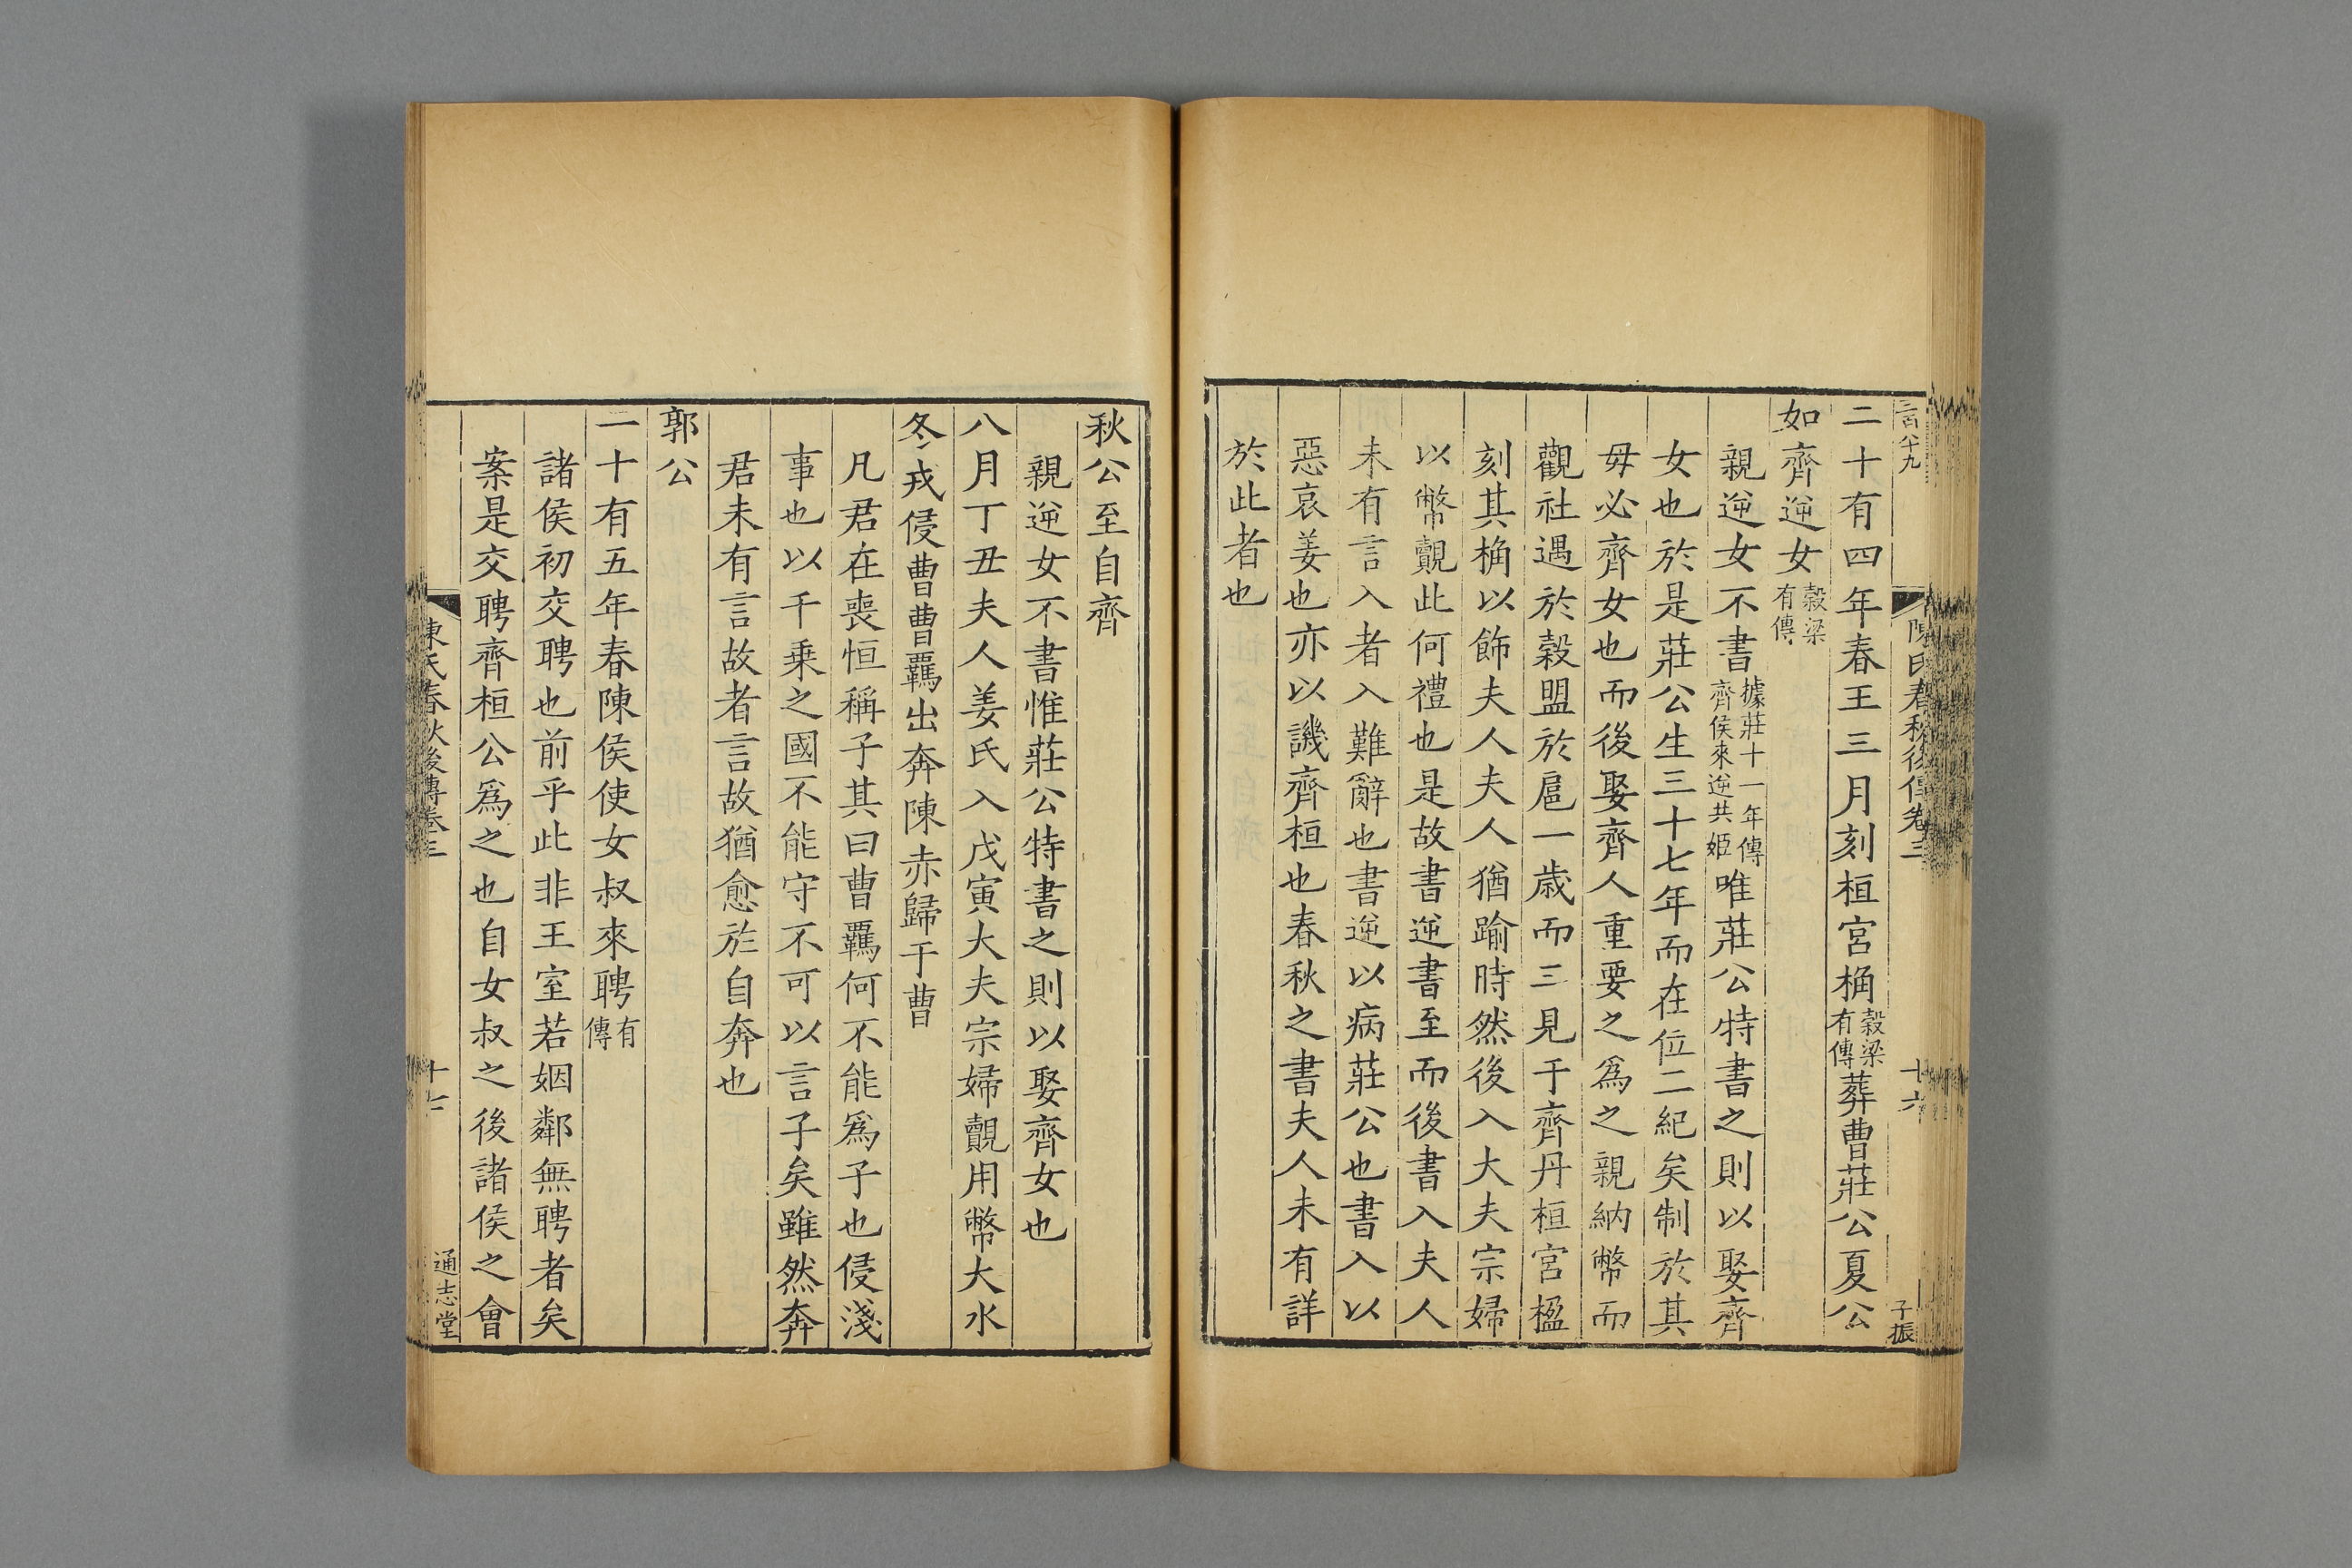 言八十九
陳氏春秋後傳卷三
十六
子振
二十有四年春王三月刻桓宮桷穀梁有傳葬曹莊公夏公
如齊逆女穀梁有傳
親逆女不書據莊十一年傳齊侯來逆共姬唯莊公特書之則以娶齊
女也於是莊公生三十七年而在位二紀矣制於其
毋必齊女也而後娶齊人重要之爲之親納幣而
觀社遇於穀盟於扈一歲而三見于齊丹桓宮楹
刻其桷以飾夫人夫人猶踰時然後入大夫宗婦
以幣覿此何禮也是故書逆書至而後書入夫人
未有言入者入難辭也書逆以病莊公也書入以
惡哀姜也亦以譏齊桓也春秋之書夫人未有詳
於此者也
秋公至自齊
親逆女不書惟莊公特書之則以娶齊女也
八月丁丑夫人姜氏入戊寅大夫宗婦覿用幣大水
冬戎侵曹曹羈出奔陳赤歸于曹
凡君在喪恒稱子其曰曹羈何不能爲子也侵淺
事也以千乗之國不能守不可以言子矣雖然奔
君未有言故者言故猶愈於自奔也
郭公
二十有五年春陳侯使女叔來聘有傳
諸侯初交聘也前乎此非王室若姻鄰無聘者矣
案是交聘齊桓公爲之也自女叔之後諸侯之會
陳氏春秋後傳卷三
十七
通志堂